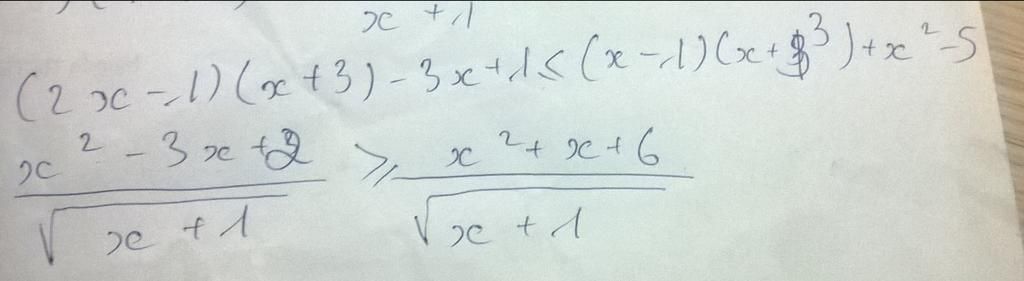 x + 1
(2x - 1)(x + 3) - 3x + 1 ≤ (x - 1)(x + 3) + x² - 5
x² - 3x + 2 / √x + 1 ≥ x² + x + 6 / √x + 1